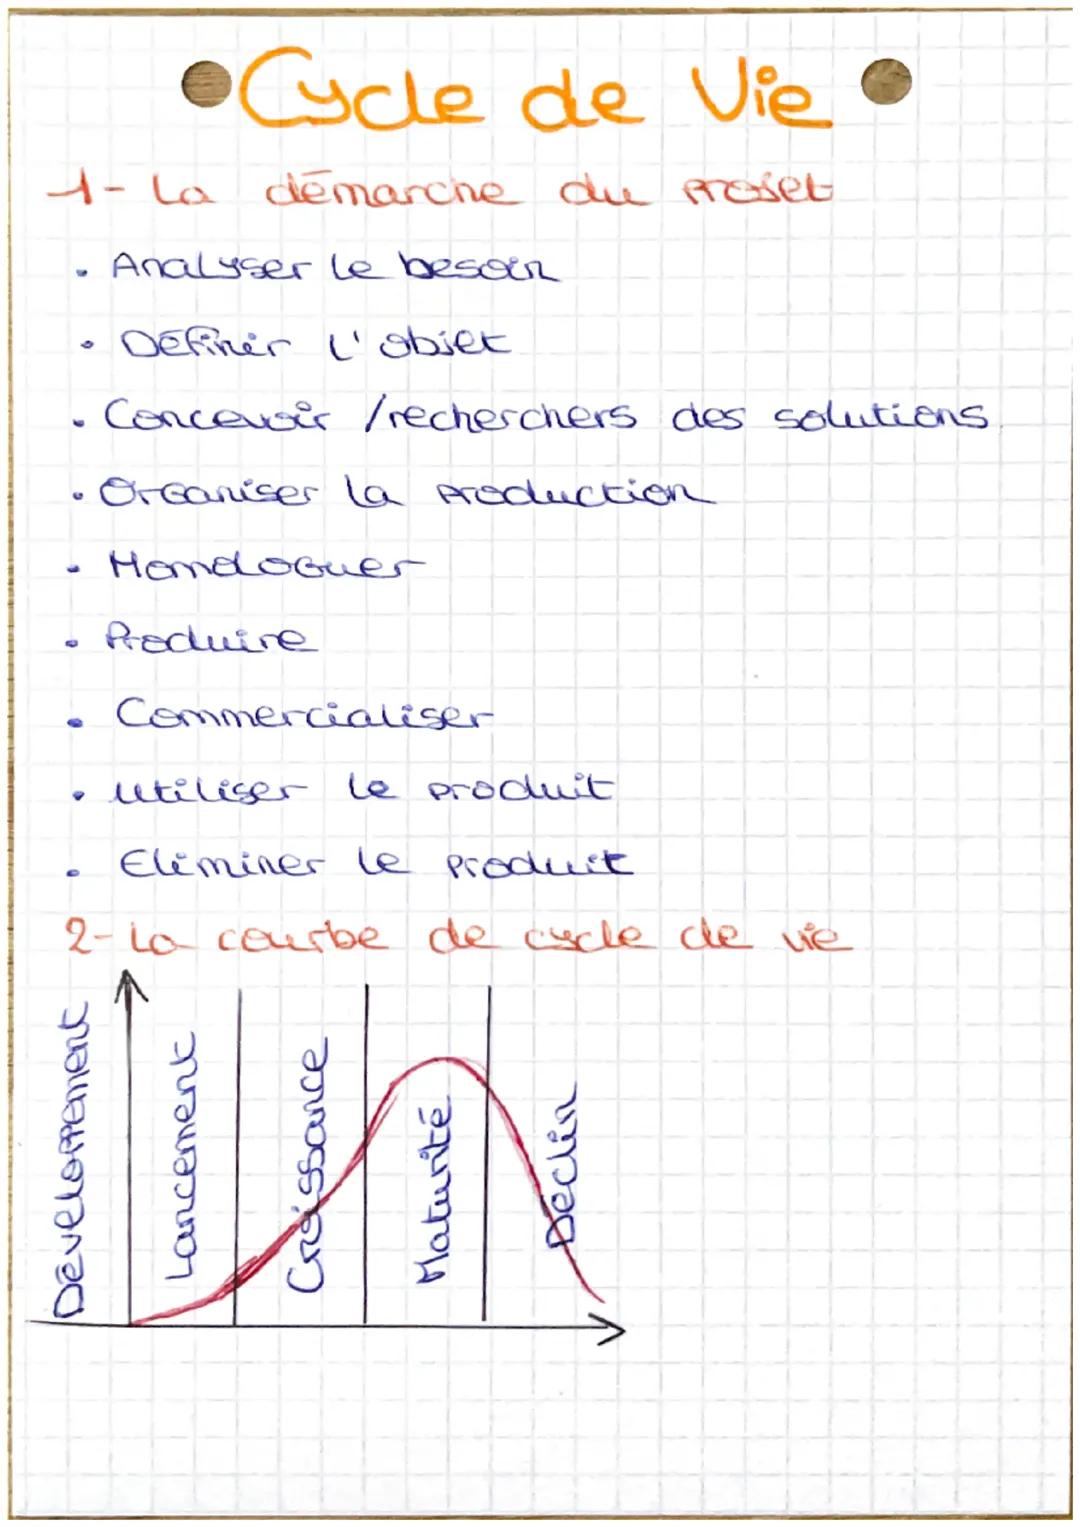 Cycle de Vie
1- La démarche du projet
• Analyser le besoin
• Définir l'objet
• Concevoir /recherchers des solutions.
• Organiser la production
• Homologuer
• Produire
• Commercialiser
• Utiliser le produit
• Eliminer le produit
2- La courbe de cycle de vie
Développement
Lancement
Croissance
Maturité
Déclin